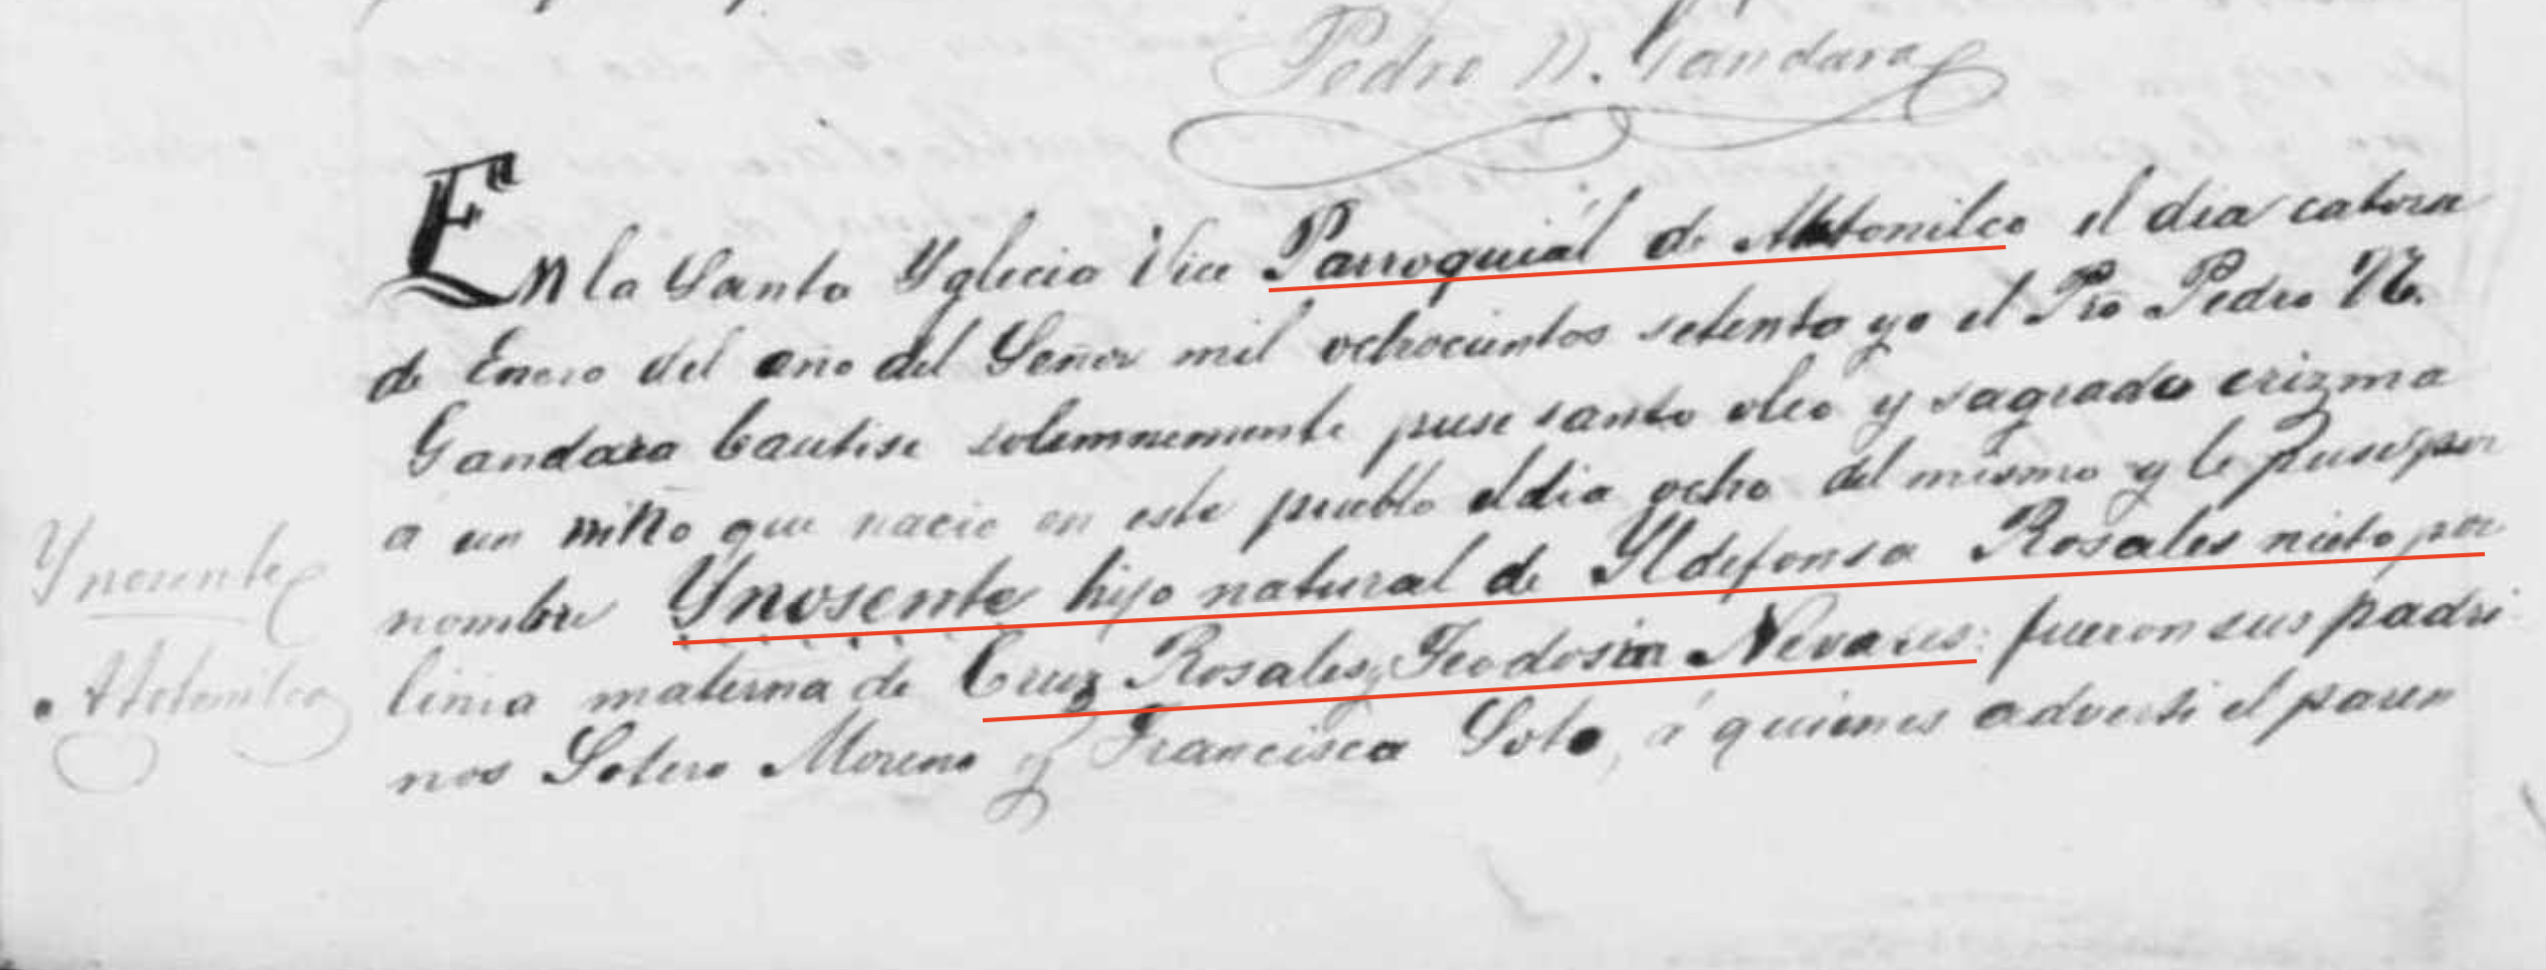 Pedro N. Gandara
En la Santa Yglecia Vice Parroquial de Atotonilco el dia catorce
de Enero del año del Señor mil ochocientos setenta yo el Pro Pedro N.
Gandara bautise solemnemente puse santo oleo y sagrado crizma
a un niño que nacio en este pueblo el dia ocho del mismo y le puse por
nombre Ynosente hijo natural de Yldefonsa Rosales nieto por
linia materna de Cruz Rosales y Teodosia Nevares: fueron sus padri
nos Sotero Moreno y Francisca Soto, á quienes adverti el paren
Ynosente
Atotonilco